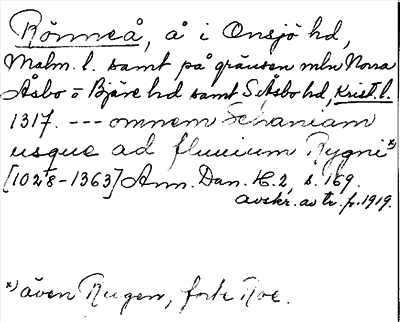 Rönneå, å i Onsjö hd,
Malm. l. samt på gränsen mln Norra
Åsbo o Bjäre hd samt S. Åsbo hd, Krist. l.
1317. --- omnem Schaniam
usque ad fluuium Rygni x)
[1028-1363] Ann. Dan. H. 2, s. 169.
avskr. av tr. fr. 1919.
x) även Rugen, forte Roe.